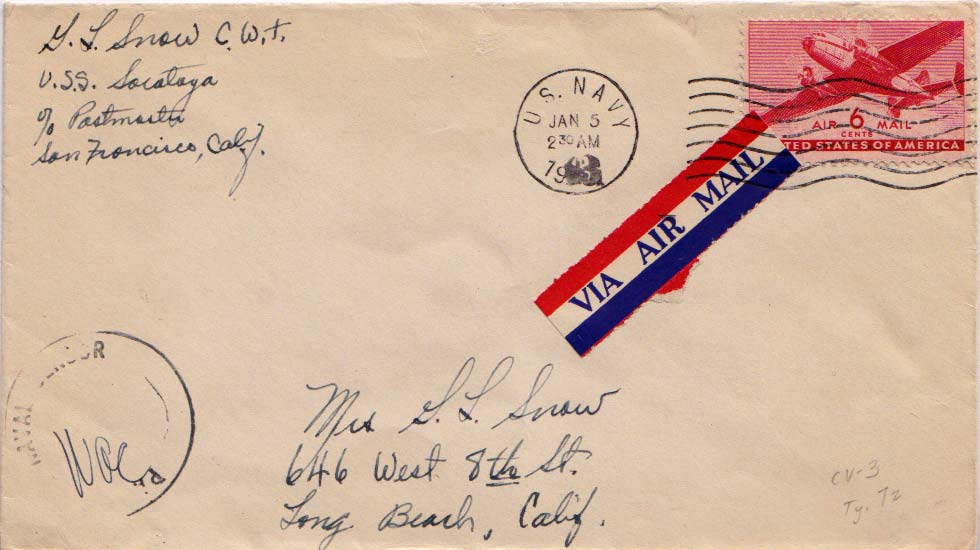 G. L. Snow C.W.T.
U.S.S. Saratoga
c/o Postmaster
San Francisco, Calif.
U.S. NAVY
JAN 5
2 30 AM
AIR 6 MAIL
CENTS
UNITED STATES OF AMERICA
VIA AIR MAIL
NAVAL CENSOR
Mrs G. L. Snow
646 West 8th St.
Long Beach, Calif.
CV-3
Ty. 7z